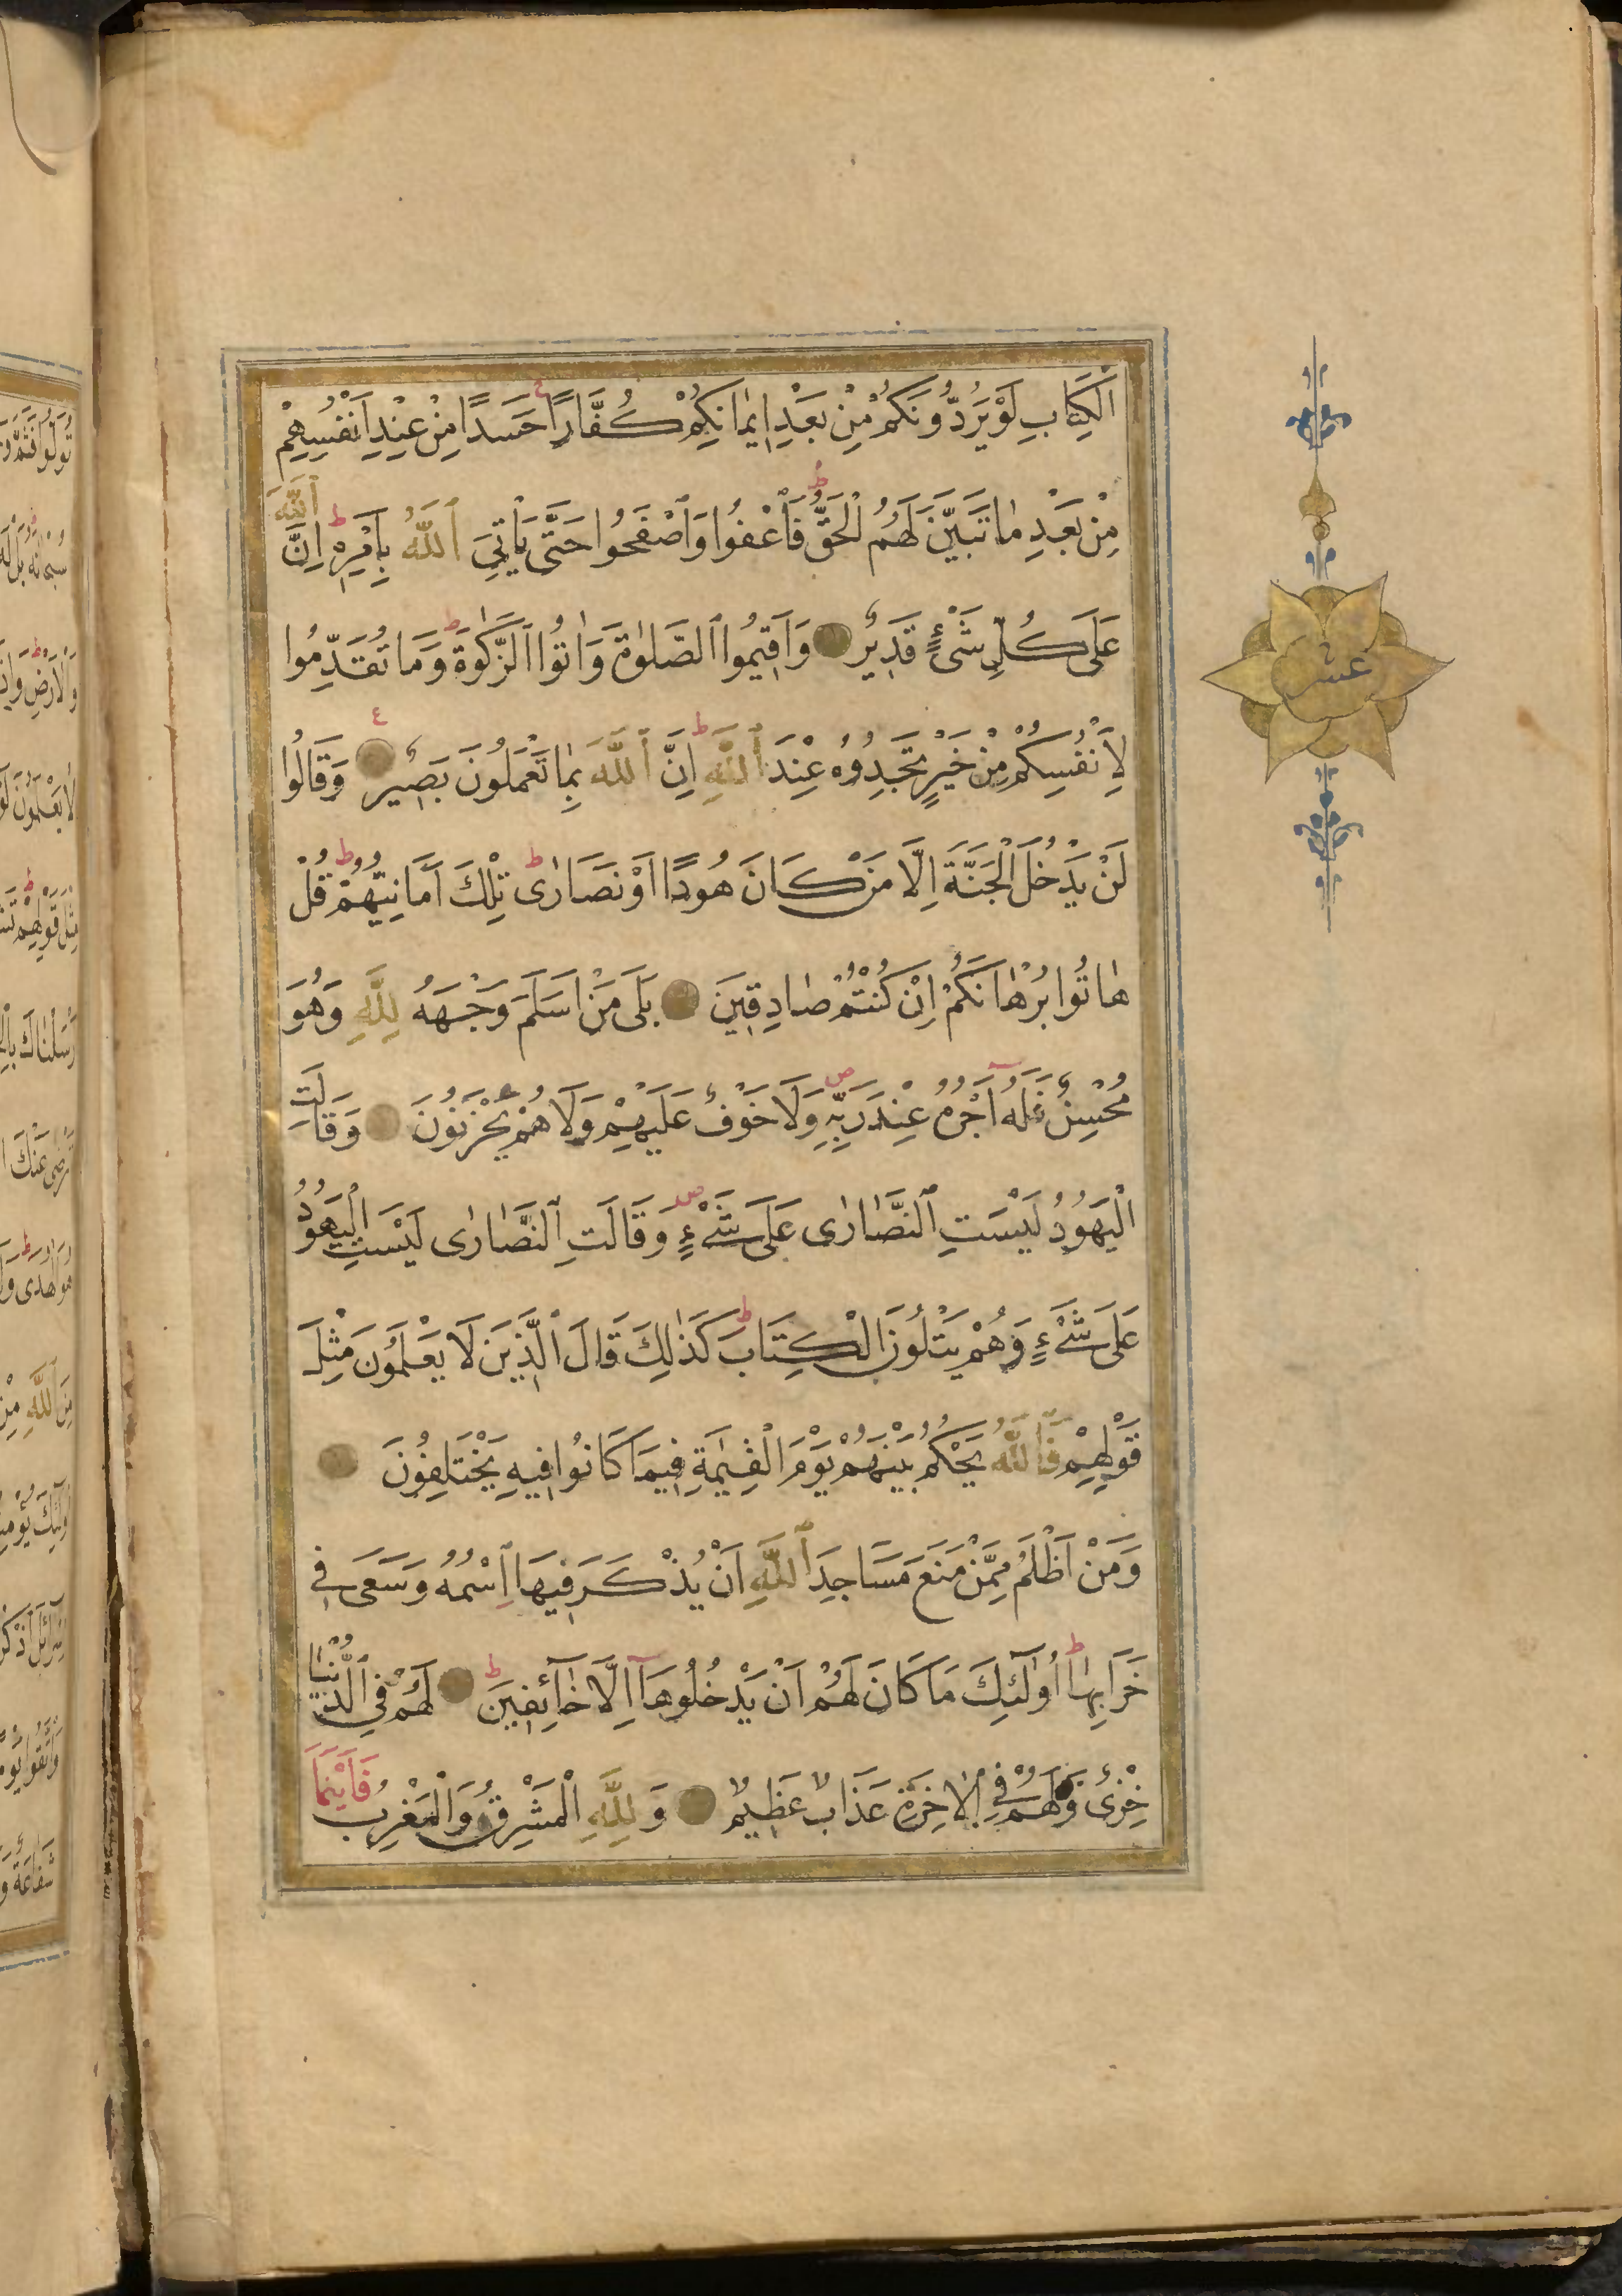 الْكِتَابِ لَوْ يَرُدُّونَكُمْ مِنْ بَعْدِ اِيمَانِكُمْ كُفَّارًا حَسَدًا مِنْ عِنْدِ اَنْفُسِهِمْ
مِنْ بَعْدِ مَا تَبَيَّنَ لَهُمُ الْحَقُّ فَاعْفُوا وَاصْفَحُوا حَتَّى يَأْتِيَ اللَّهُ بِاَمْرِهِ اِنَّ اللَّهَ
عَلَى كُلِّ شَيْءٍ قَدِيرٌ وَاَقِيمُوا الصَّلٰوةَ وَاٰتُوا الزَّكٰوةَ وَمَا تُقَدِّمُوا
لِاَنْفُسِكُمْ مِنْ خَيْرٍ تَجِدُوهُ عِنْدَ اللَّهِ اِنَّ اللَّهَ بِمَا تَعْمَلُونَ بَصِيرٌ وَقَالُوا
لَنْ يَدْخُلَ الْجَنَّةَ اِلَّا مَنْ كَانَ هُودًا اَوْ نَصَارٰى تِلْكَ اَمَانِيُّهُمْ قُلْ
هَاتُوا بُرْهَانَكُمْ اِنْ كُنْتُمْ صَادِقِينَ بَلَى مَنْ اَسْلَمَ وَجْهَهُ لِلَّهِ وَهُوَ
مُحْسِنٌ فَلَهُ اَجْرُهُ عِنْدَ رَبِّهِ وَلَا خَوْفٌ عَلَيْهِمْ وَلَا هُمْ يَحْزَنُونَ وَقَالَتِ
الْيَهُودُ لَيْسَتِ النَّصَارٰى عَلَى شَيْءٍ وَقَالَتِ النَّصَارٰى لَيْسَتِ الْيَهُودُ
عَلَى شَيْءٍ وَهُمْ يَتْلُونَ الْكِتَابَ كَذٰلِكَ قَالَ الَّذِينَ لَا يَعْلَمُونَ مِثْلَ
قَوْلِهِمْ فَاللَّهُ يَحْكُمُ بَيْنَهُمْ يَوْمَ الْقِيٰمَةِ فِيمَا كَانُوا فِيهِ يَخْتَلِفُونَ
وَمَنْ اَظْلَمُ مِمَّنْ مَنَعَ مَسَاجِدَ اللَّهِ اَنْ يُذْكَرَ فِيهَا اسْمُهُ وَسَعَى فِي
خَرَابِهَا اُولٰئِكَ مَا كَانَ لَهُمْ اَنْ يَدْخُلُوهَا اِلَّا خَائِفِينَ لَهُمْ فِي الدُّنْيَا
خِزْيٌ وَلَهُمْ فِي الْاٰخِرَةِ عَذَابٌ عَظِيمٌ وَلِلَّهِ الْمَشْرِقُ وَالْمَغْرِبُ فَاَيْنَمَا
عشر